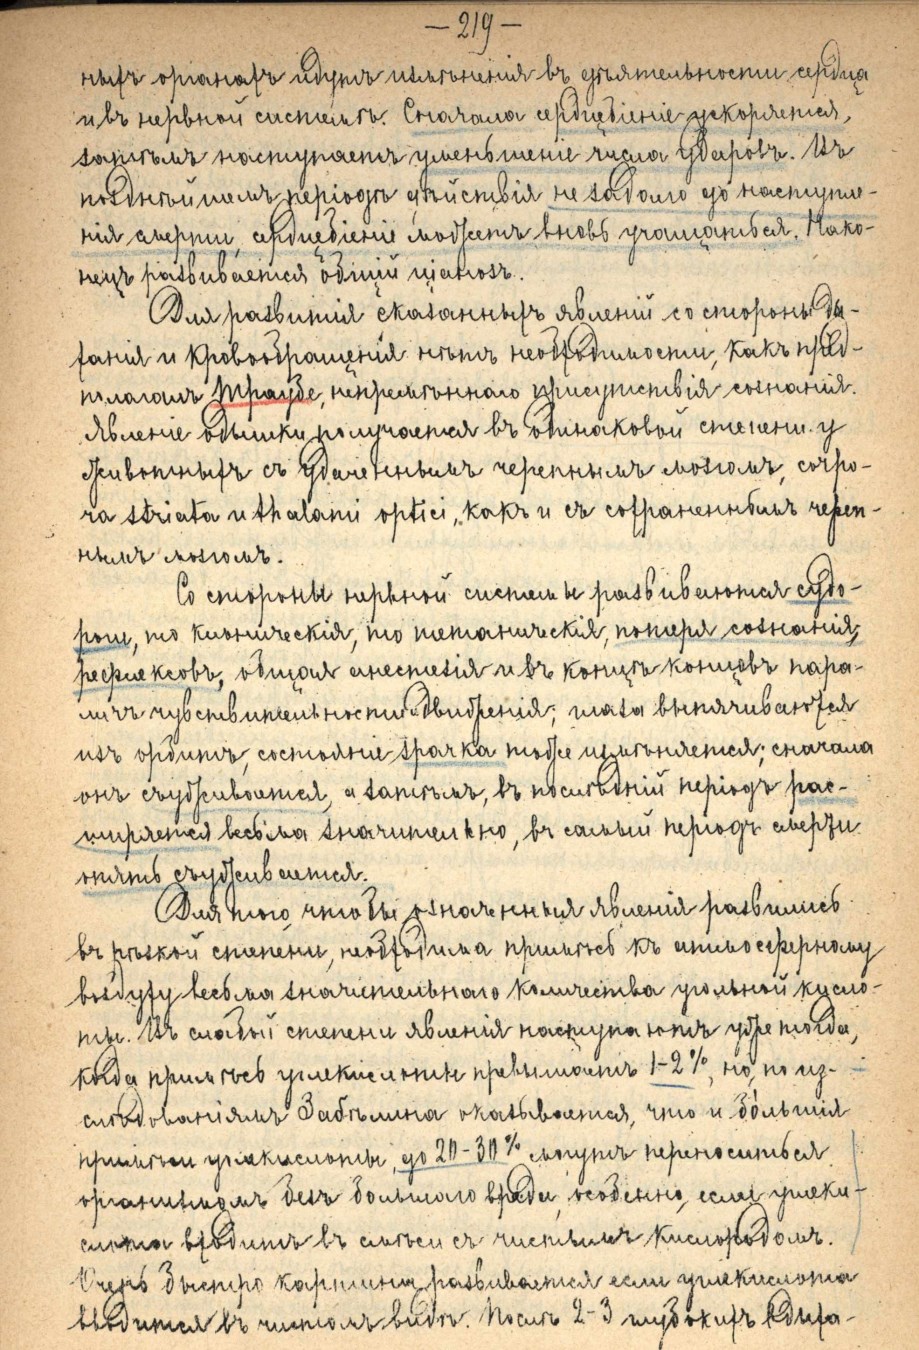 — 219 —
ныхъ органахъ идутъ измѣненія въ дѣятельности сердца
и въ нервной системѣ. Сначала сердцебіеніе ускоряется,
затѣмъ наступаетъ уменьшеніе числа ударовъ. Въ
позднѣйшемъ періодѣ дѣйствія не задолго до наступле-
нія смерти, сердцебіеніе можетъ вновь учащаться. Нако-
нецъ развивается общій ціанозъ.
Для развитія сказанныхъ явленій со стороны ды-
ханія и кровообращенія нѣтъ необходимости, какъ пред-
полагалъ Траубе, непремѣннаго присутствія сознанія.
Явленіе одышки получается въ одинаковой степени у
животныхъ съ удаленнымъ черепнымъ мозгомъ, corpo-
ra striata и thalami optici, какъ и съ сохраненнымъ череп-
нымъ мозгомъ.
Со стороны нервной системы развиваются судо-
роги, то клоническія, то тетаническія, потеря сознанія,
рефлексовъ, общая анестезія и въ концѣ концовъ пара-
личъ чувствительности и движенія; глаза выпячиваются
изъ орбитъ, состояніе зрачка тоже измѣняется; сначала
онъ съуживается, а затѣмъ, въ послѣдній періодъ рас-
ширяется весьма значительно, въ самый періодъ смерти
опять съуживается.
Для того, чтобы означенныя явленія развились
въ рѣзкой степени, необходима примѣсь къ атмосферному
воздуху весьма значительнаго количества угольной кисло-
ты. Въ слабой степени явленія наступаютъ уже тогда,
когда примѣсь углекислоты превышаетъ 1-2%, но, по из-
слѣдованіямъ Забѣлина оказывается, что и бо́льшія
примѣси углекислоты, до 20-30% могутъ переноситься
организмомъ безъ большаго вреда, особенно, если углеки-
слота входитъ въ смѣси съ чистымъ кислородомъ.
Очень быстро картина развивается если углекислота
вводится въ чистомъ видѣ. Послѣ 2-3 глубокихъ вдыха-